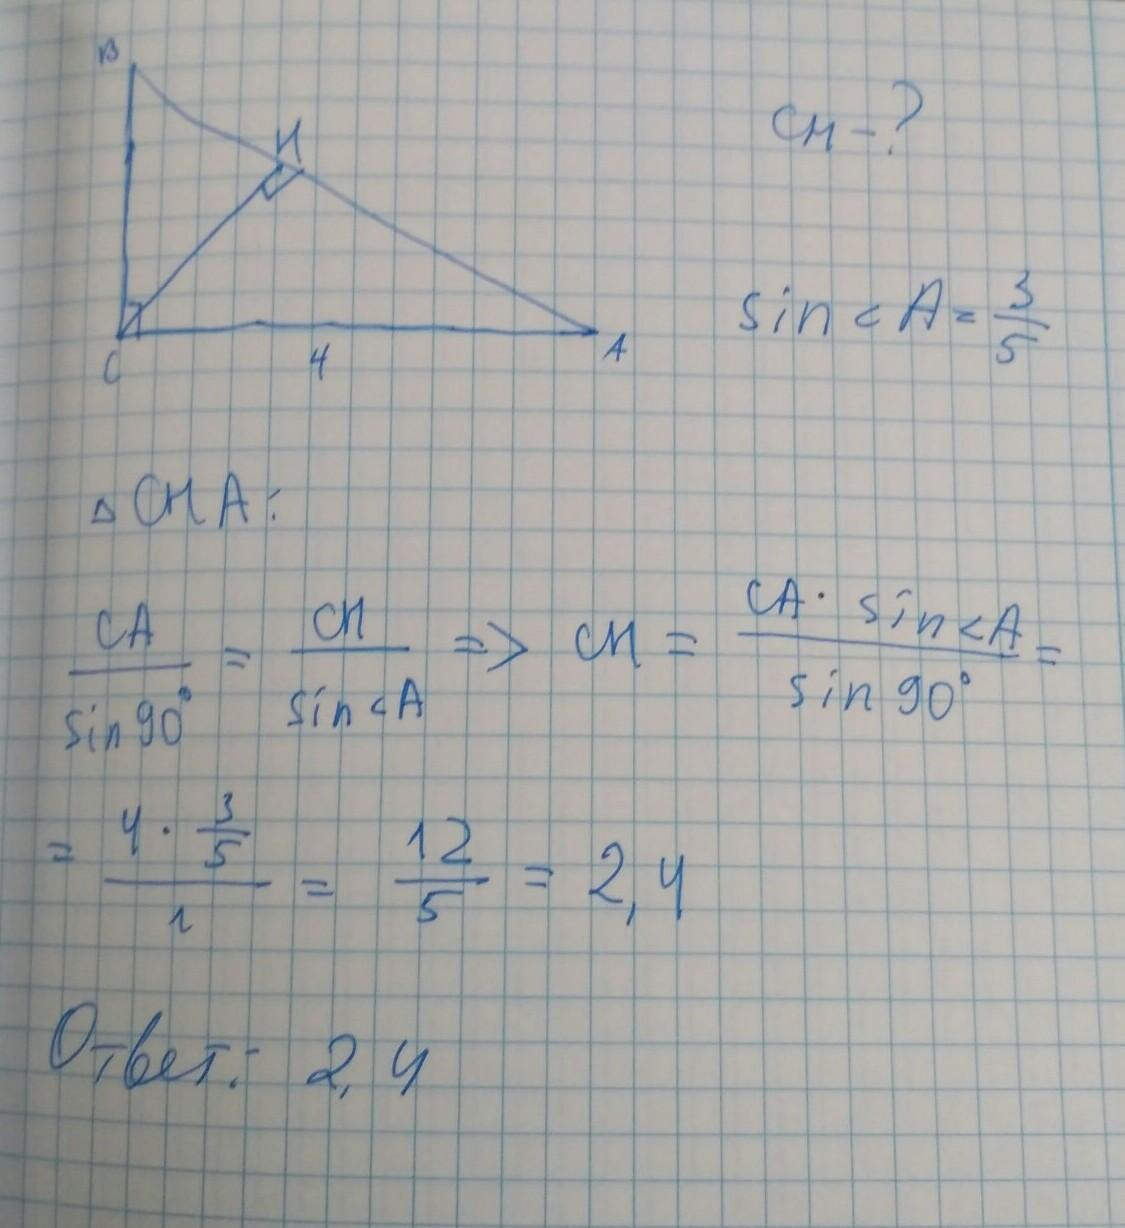 B
H
CH - ?
sin < A = 3/5
C 4 A
▵ CHA:
CA/sin 90° = CH/sin < A => CH = CA · sin < A/sin 90° =
= 4 · 3/5/1 = 12/5 = 2,4
Ответ: 2,4